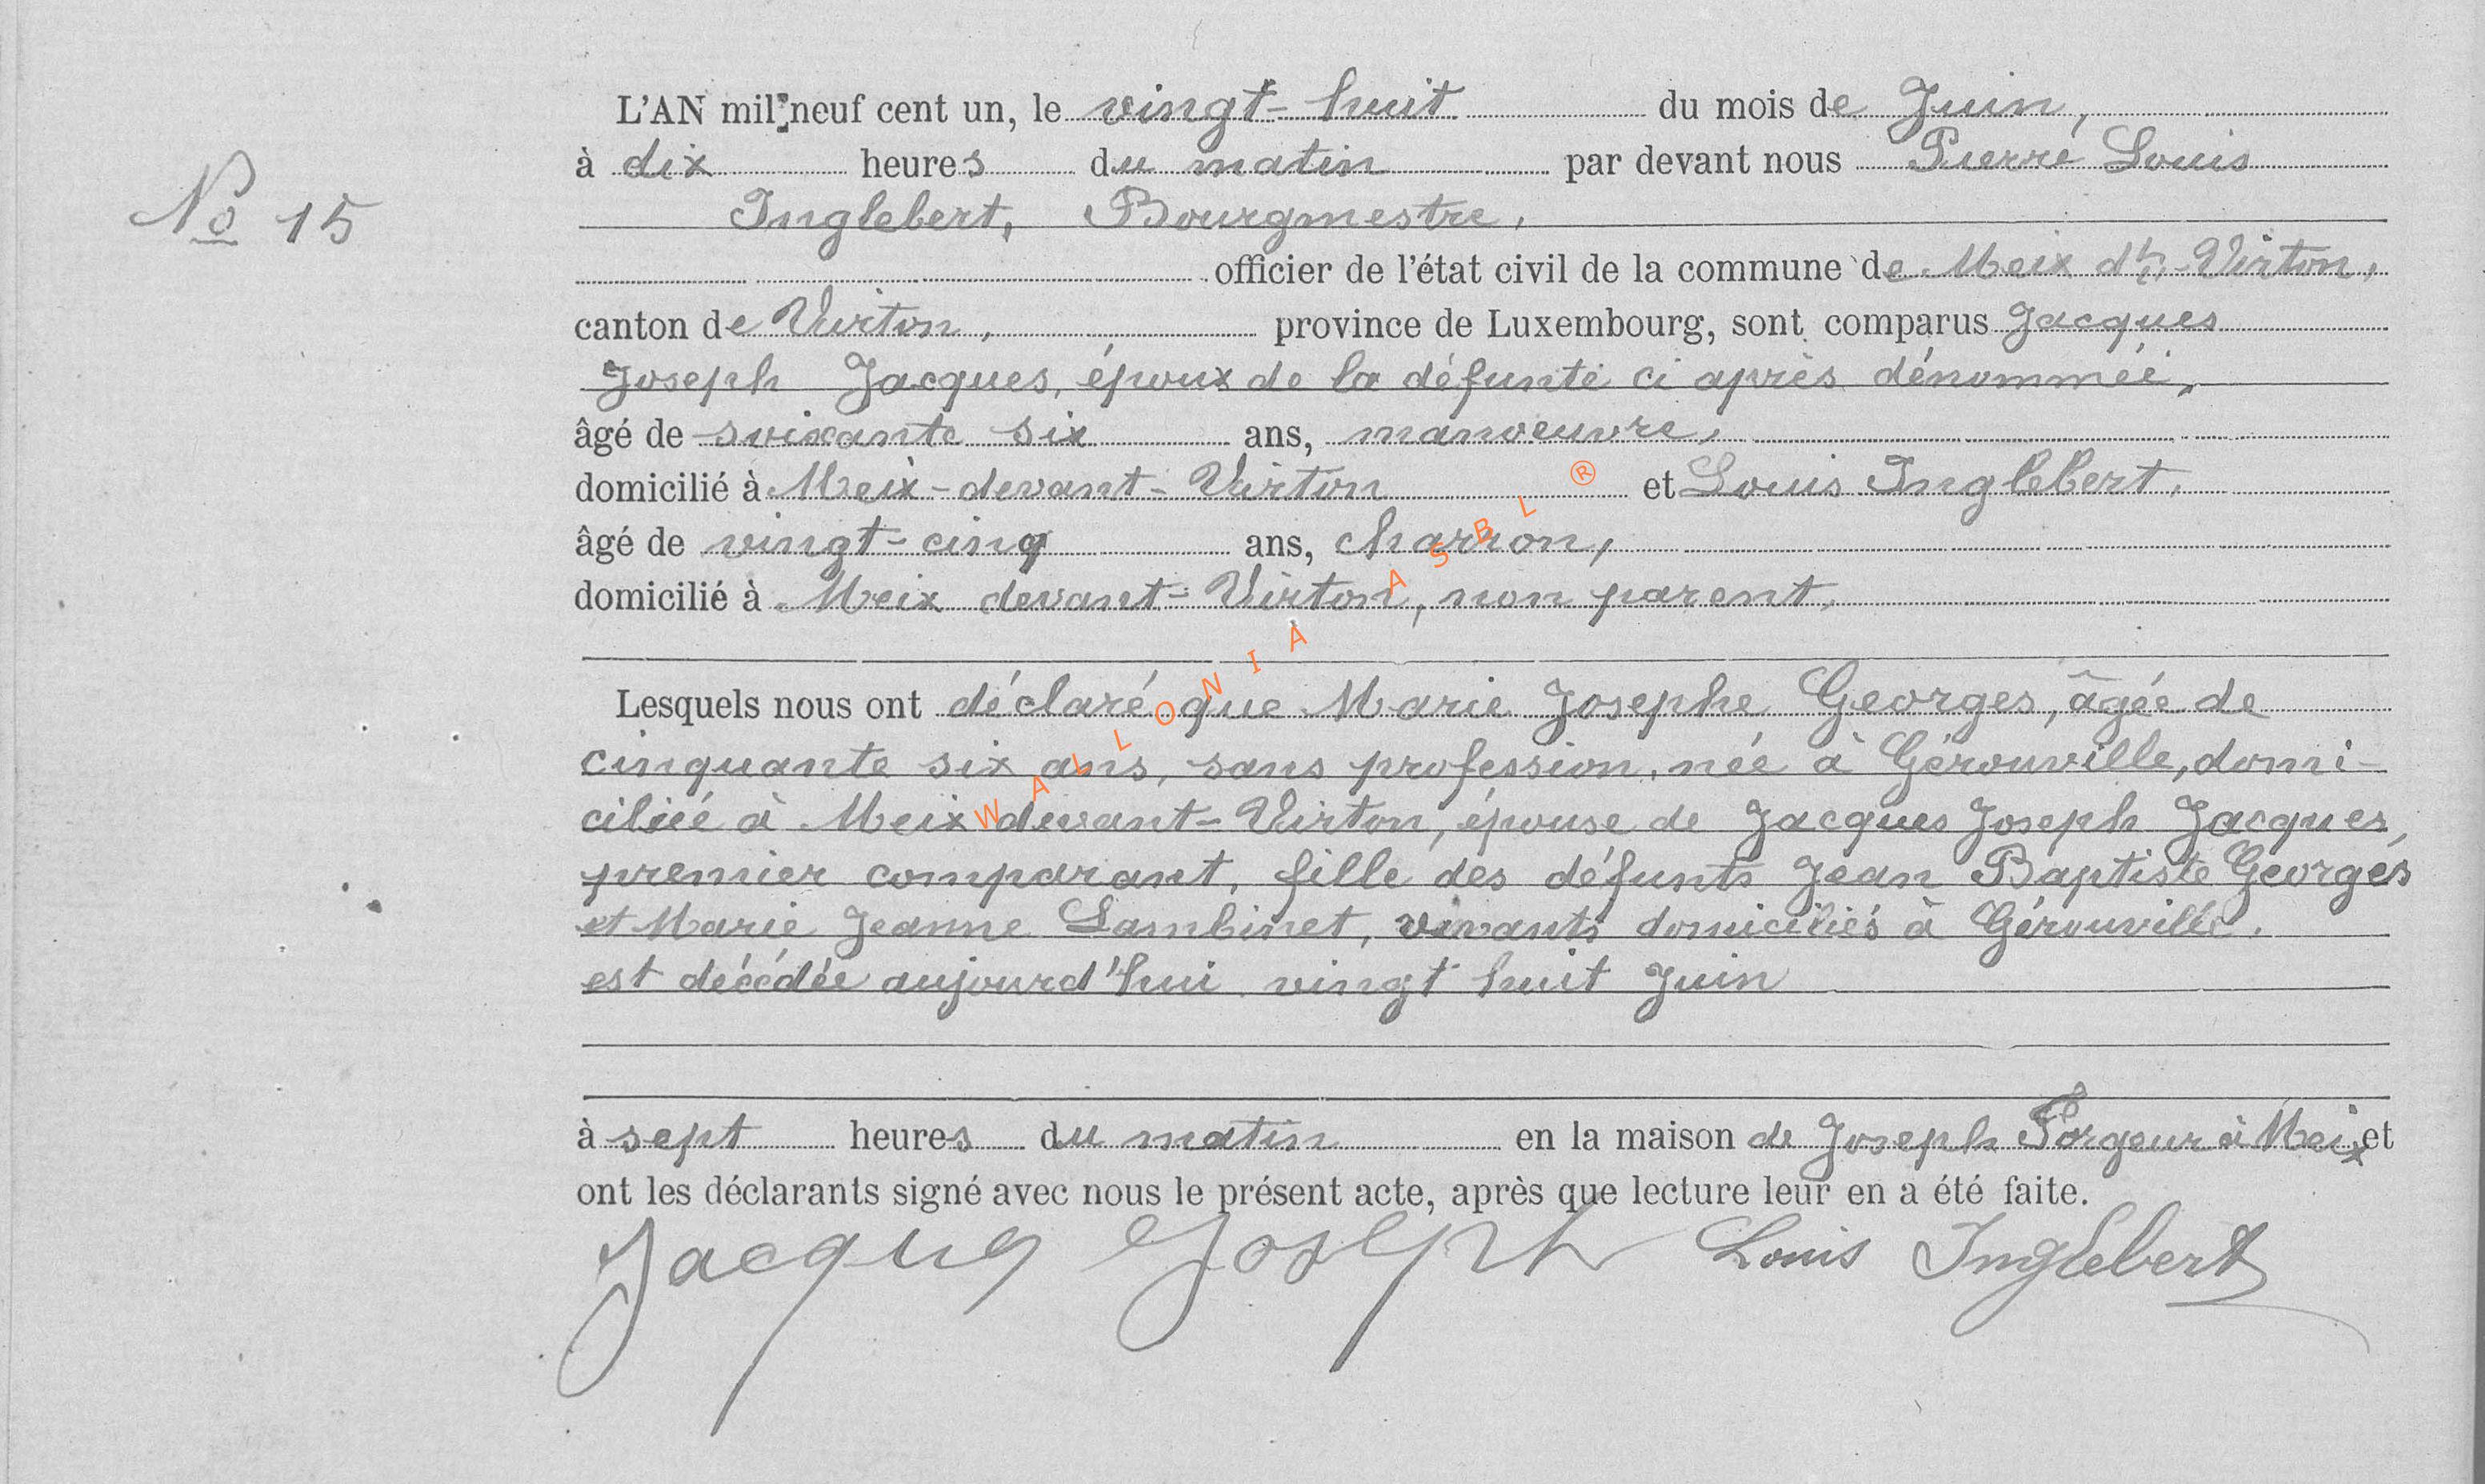 L'AN mil neuf cent un, le vingt-huit du mois de Juin,
à dix heures du matin par devant nous Pierre Louis
No 15
Inglebert, Bourgmestre,
officier de l'état civil de la commune de Meix dt-Virton,
canton de Virton, province de Luxembourg, sont comparus Jacques
Joseph Jacques, époux de la défunte ci après dénommée,
âgé de soixante six ans, manoeuvre,
domicilié à Meix-devant-Virton et Louis Inglebert,
âgé de vingt-cinq ans, charron,
domicilié à Meix devant-Virton, non parent,
Lesquels nous ont déclaré que Marie Josephe Georges, âgée de
cinquante six ans, sans profession, née à Gérouville, domi-
ciliée à Meix devant-Virton, épouse de Jacques Joseph Jacques,
premier comparant, fille des défunts Jean Baptiste Georges
et Marie Jeanne Lambinet, vivants domiciliés à Gérouville,
est décédée aujourd'hui vingt huit Juin
à sept heures du matin en la maison de Joseph Forgeur à Meix et
ont les déclarants signé avec nous le présent acte, après que lecture leur en a été faite.
Jacques Joseph Louis Inglebert
WALLONIA ASBL ®